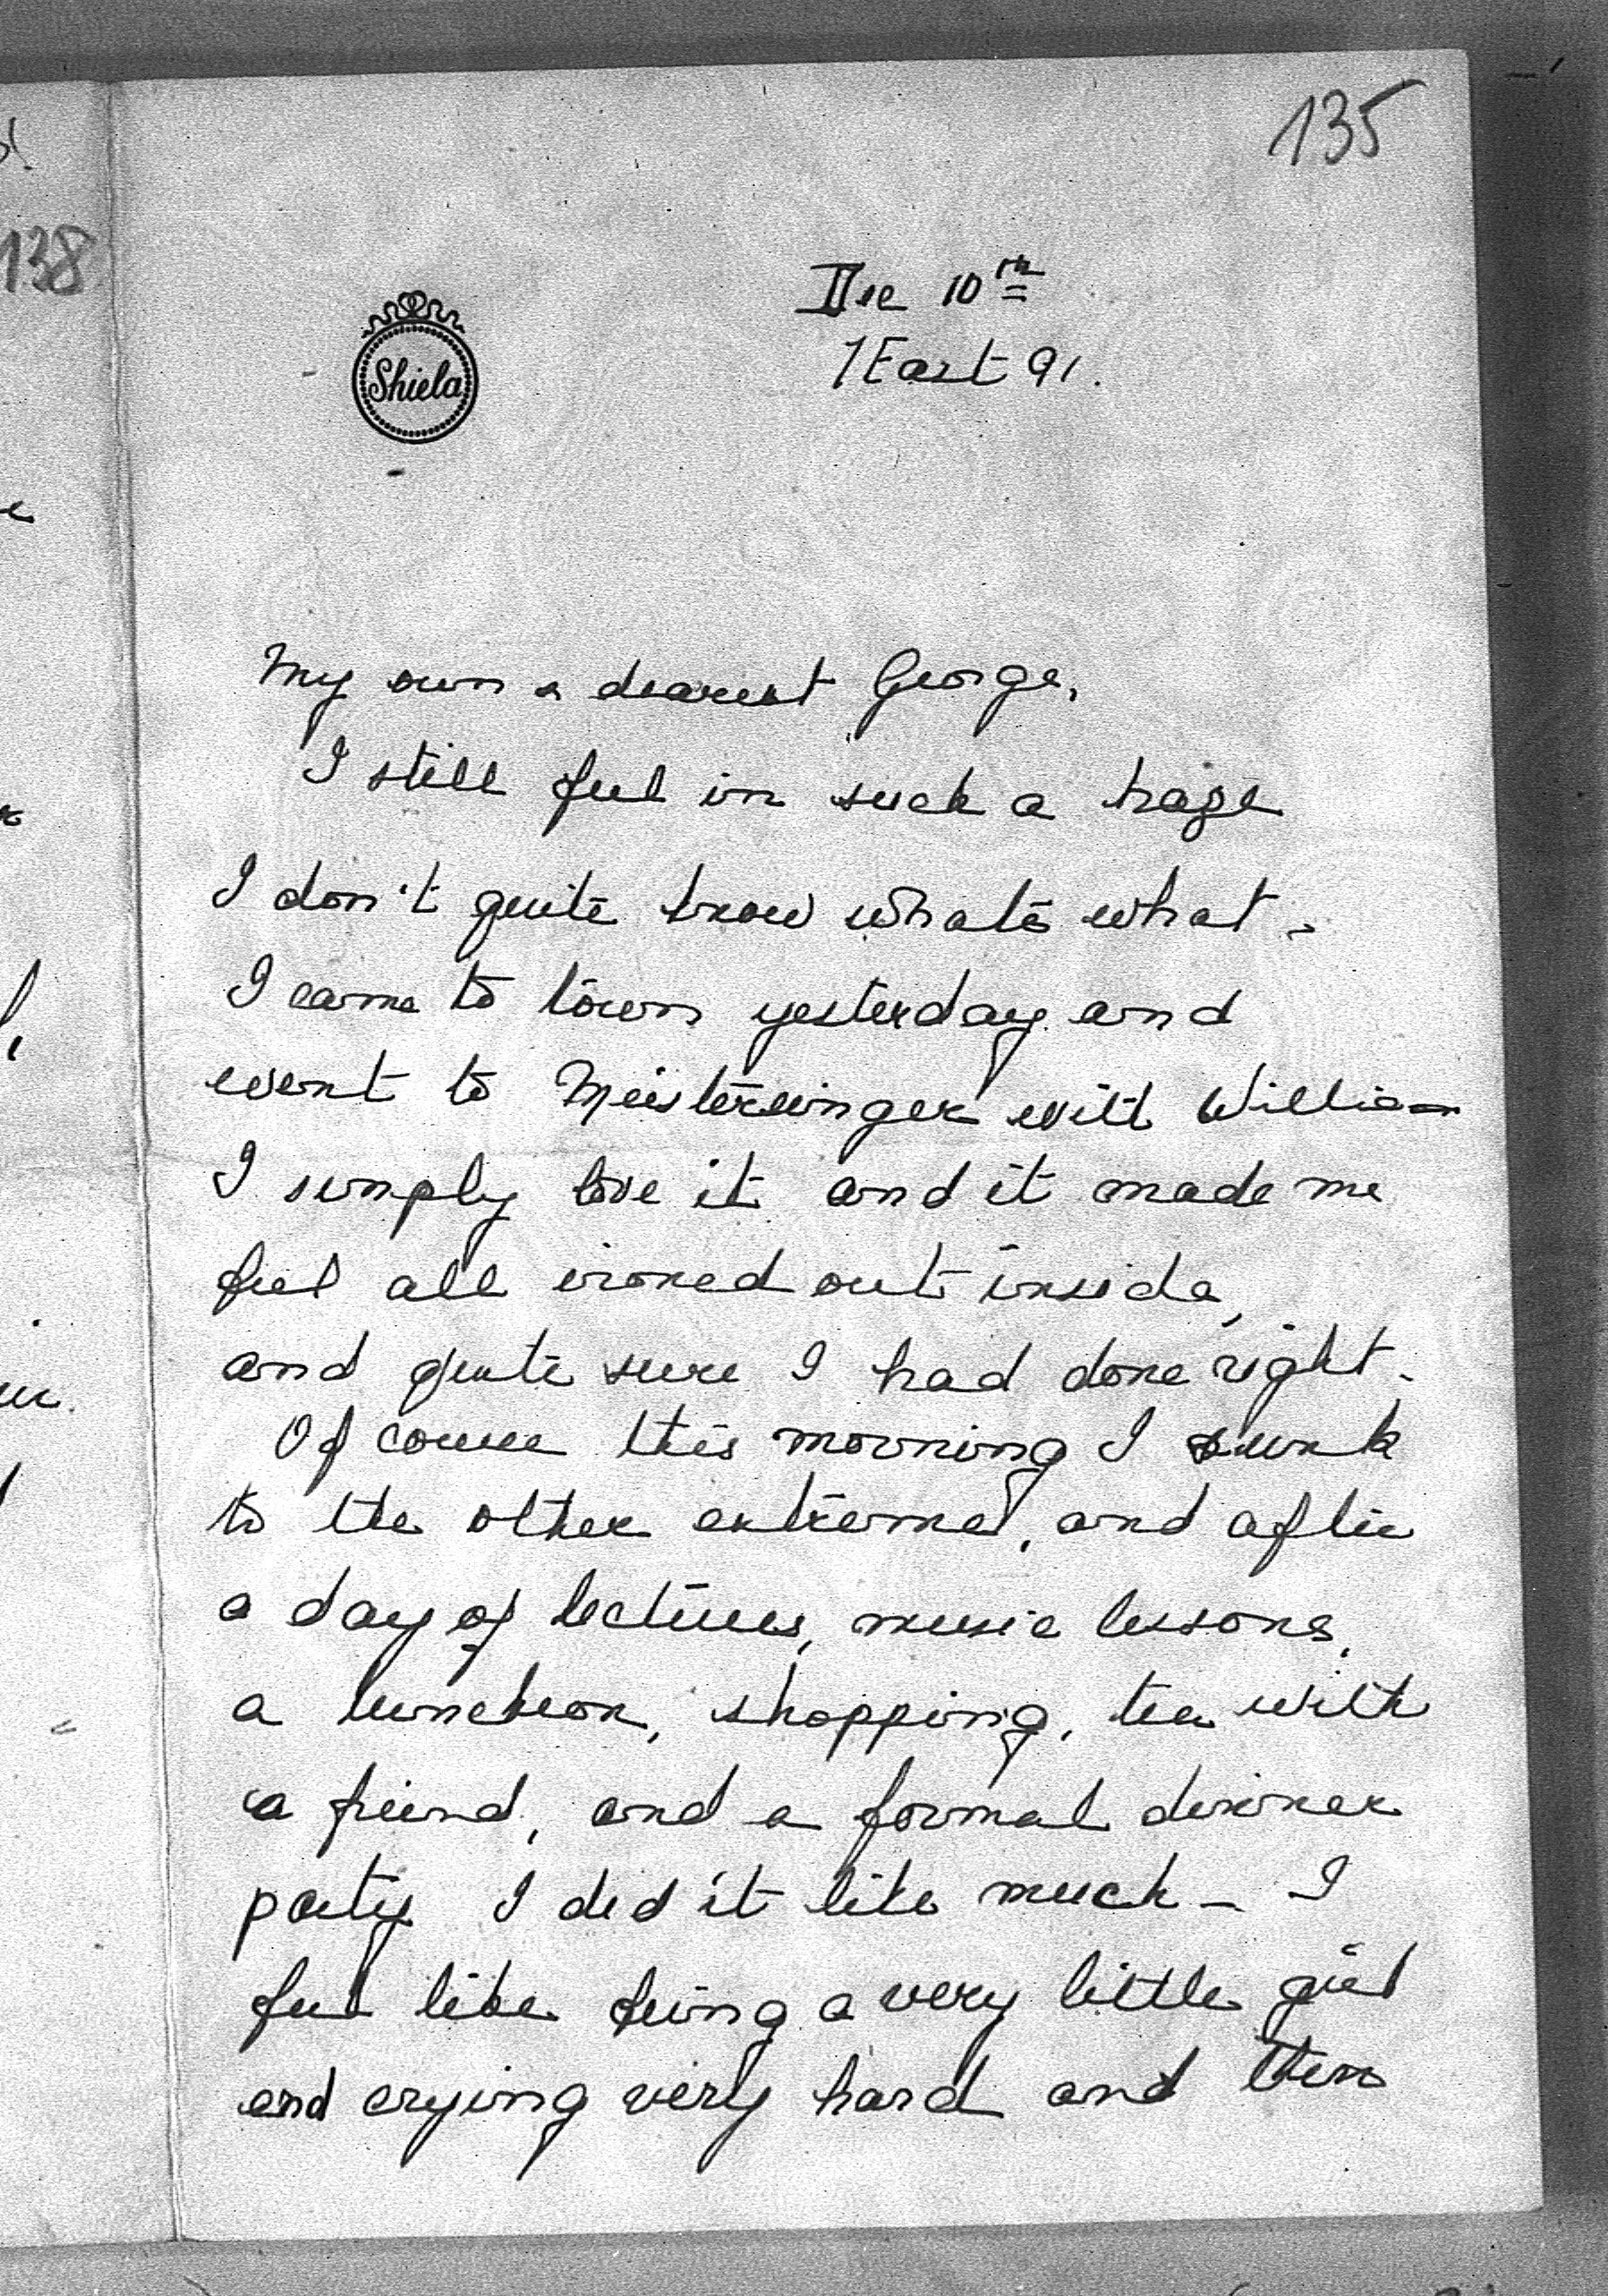 135
138
Dec 10th
1 East 91.
Shiela
My own & dearest George,
I still feel in such a haze
I don't quite know whats what.
I came to town yesterday and
went to Meistersinger with William
I simply love it and it made me
feel all ironed out inside,
and quite sure I had done right.
Of course this morning I sunk
to the other extreme, and after
a day of lectures, music lessons,
a luncheon, shopping, tea with
a friend, and a formal dinner
party I did it like much – I
feel like being a very little girl
and crying very hard and then